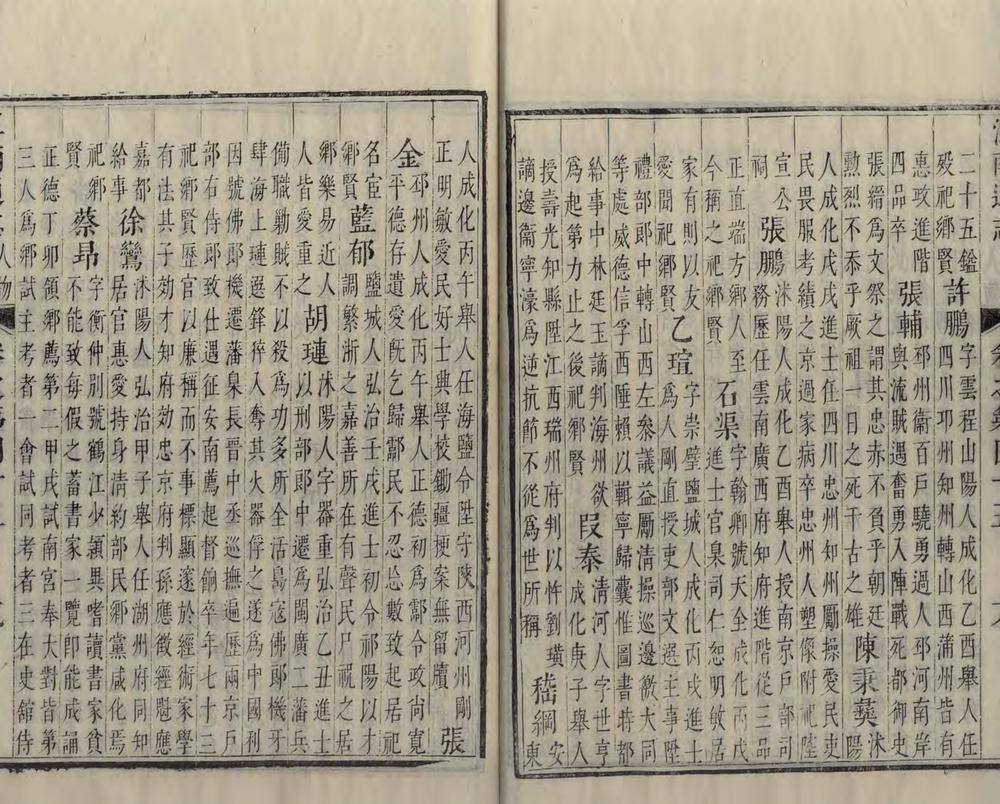 二十五鑑
歿祀鄉賢
許鵬
字雲程山陽人成化乙酉舉人任
四川邛州知州轉山西蒲州皆有
惠政進階
四品卒
張輔
邳州衞百戶驍勇過人邳河南岸
與流賊遇奮勇入陣戰死都御史
張縉為文祭之謂其忠赤不負乎朝廷
勲烈不忝乎厥祖一日之死千古之雄
陳秉彝
沭
陽
人成化戊戌進士任四川忠州知州勵操愛民吏
民畏服考績之京過家病卒忠州人塑像附祀陸
宣公
祠
張鵬
沭陽人成化乙酉舉人授南京戶部司
務歷任雲南廣西府知府進階從三品
正直端方鄉人至
今稱之祀鄉賢
石渠
字翰卿號天全成化丙戌
進士官臬司仁恕明敏居
家有則以友
愛聞祀鄉賢
乙瑄
字崇璧鹽城人成化丙戌進士
為人剛直授吏部文選主事陞
禮部郎中轉山西左叅議益厲清操巡邊徼大同
等處威德信孚西陲賴以輯寧歸囊惟圖書特都
給事中林廷玉謫判海州欲
為起第力止之後祀鄉賢
段秦
清河人字世亨
成化庚子舉人
授壽光知縣陞江西瑞州府判以忤劉瓚
謫邊衞寧濠為逆抗節不從為世所稱
嵇綱
安
東
人成化丙午舉人任海鹽令陞守陝西河州剛
正明敏愛民好士興學校鋤疆梗案無留牘
張
金
邳州人成化丙午舉人正德初為鄢令政尚寬
平德存遺愛旣乞歸鄢民不忍忘數致起居祀
名宦
鄉賢
藍郁
鹽城人弘治壬戌進士初令祁陽以才
調繁浙之嘉善所在有聲民尸祝之居
鄉樂易近人
人皆愛重之
胡璉
沭陽人字器重弘治乙丑進士
以刑部郎中遷閩廣二藩兵
備職勦賊不以殺為功多所全活島寇佛郎機牙
肆海上璉選鋒猝入奪其火器俘之遂為中國利
因號佛郎機遷藩臬長晉中丞巡撫遍歷兩京戶
部右侍郎致仕遇征安南薦起督餉卒年七十三
祀鄉賢歷官以廉稱而不事標顯邃於經術家學
有法其子効才知府効忠京府判孫應徵經魁應
嘉都
給事
徐鸞
沭陽人弘治甲子舉人任湖州府同知
居官惠愛持身清約部民鄉黨咸化焉
祀鄉
賢
蔡昂
字衡仲別號鶴江少頴異嗜讀書家貧
不能致每假之蓄書家一覽即能成誦
正德丁卯領鄉薦第二甲戌試南宮奉大對皆第
三人為鄉試主考者一會試同考者三在史舘侍